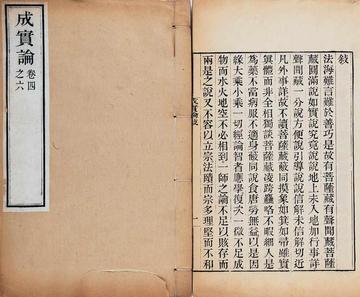 成實論
卷四
之六
敍
法海難言難於善巧是故有菩薩藏有聲聞藏菩薩
藏圓滿說如實說究竟說說地上未入地加行事詳
聲聞藏一分說方便說引導說說信解未信解切近
凡外事詳故不讀菩薩藏藐同摸象如箕如帚雖實
異體而非全相獨談菩薩藏凌跨躐略不暇細人是
為藥不當病服不適身藐同說食唐勞無益以是因
緣大乘小乘一切經論智者應學復次一微不足成
物而水火地空不必相到一師之論不足以賅存而
兩是之說又不容以立宗法隤而宗多理堅而不和
成實論敍
一